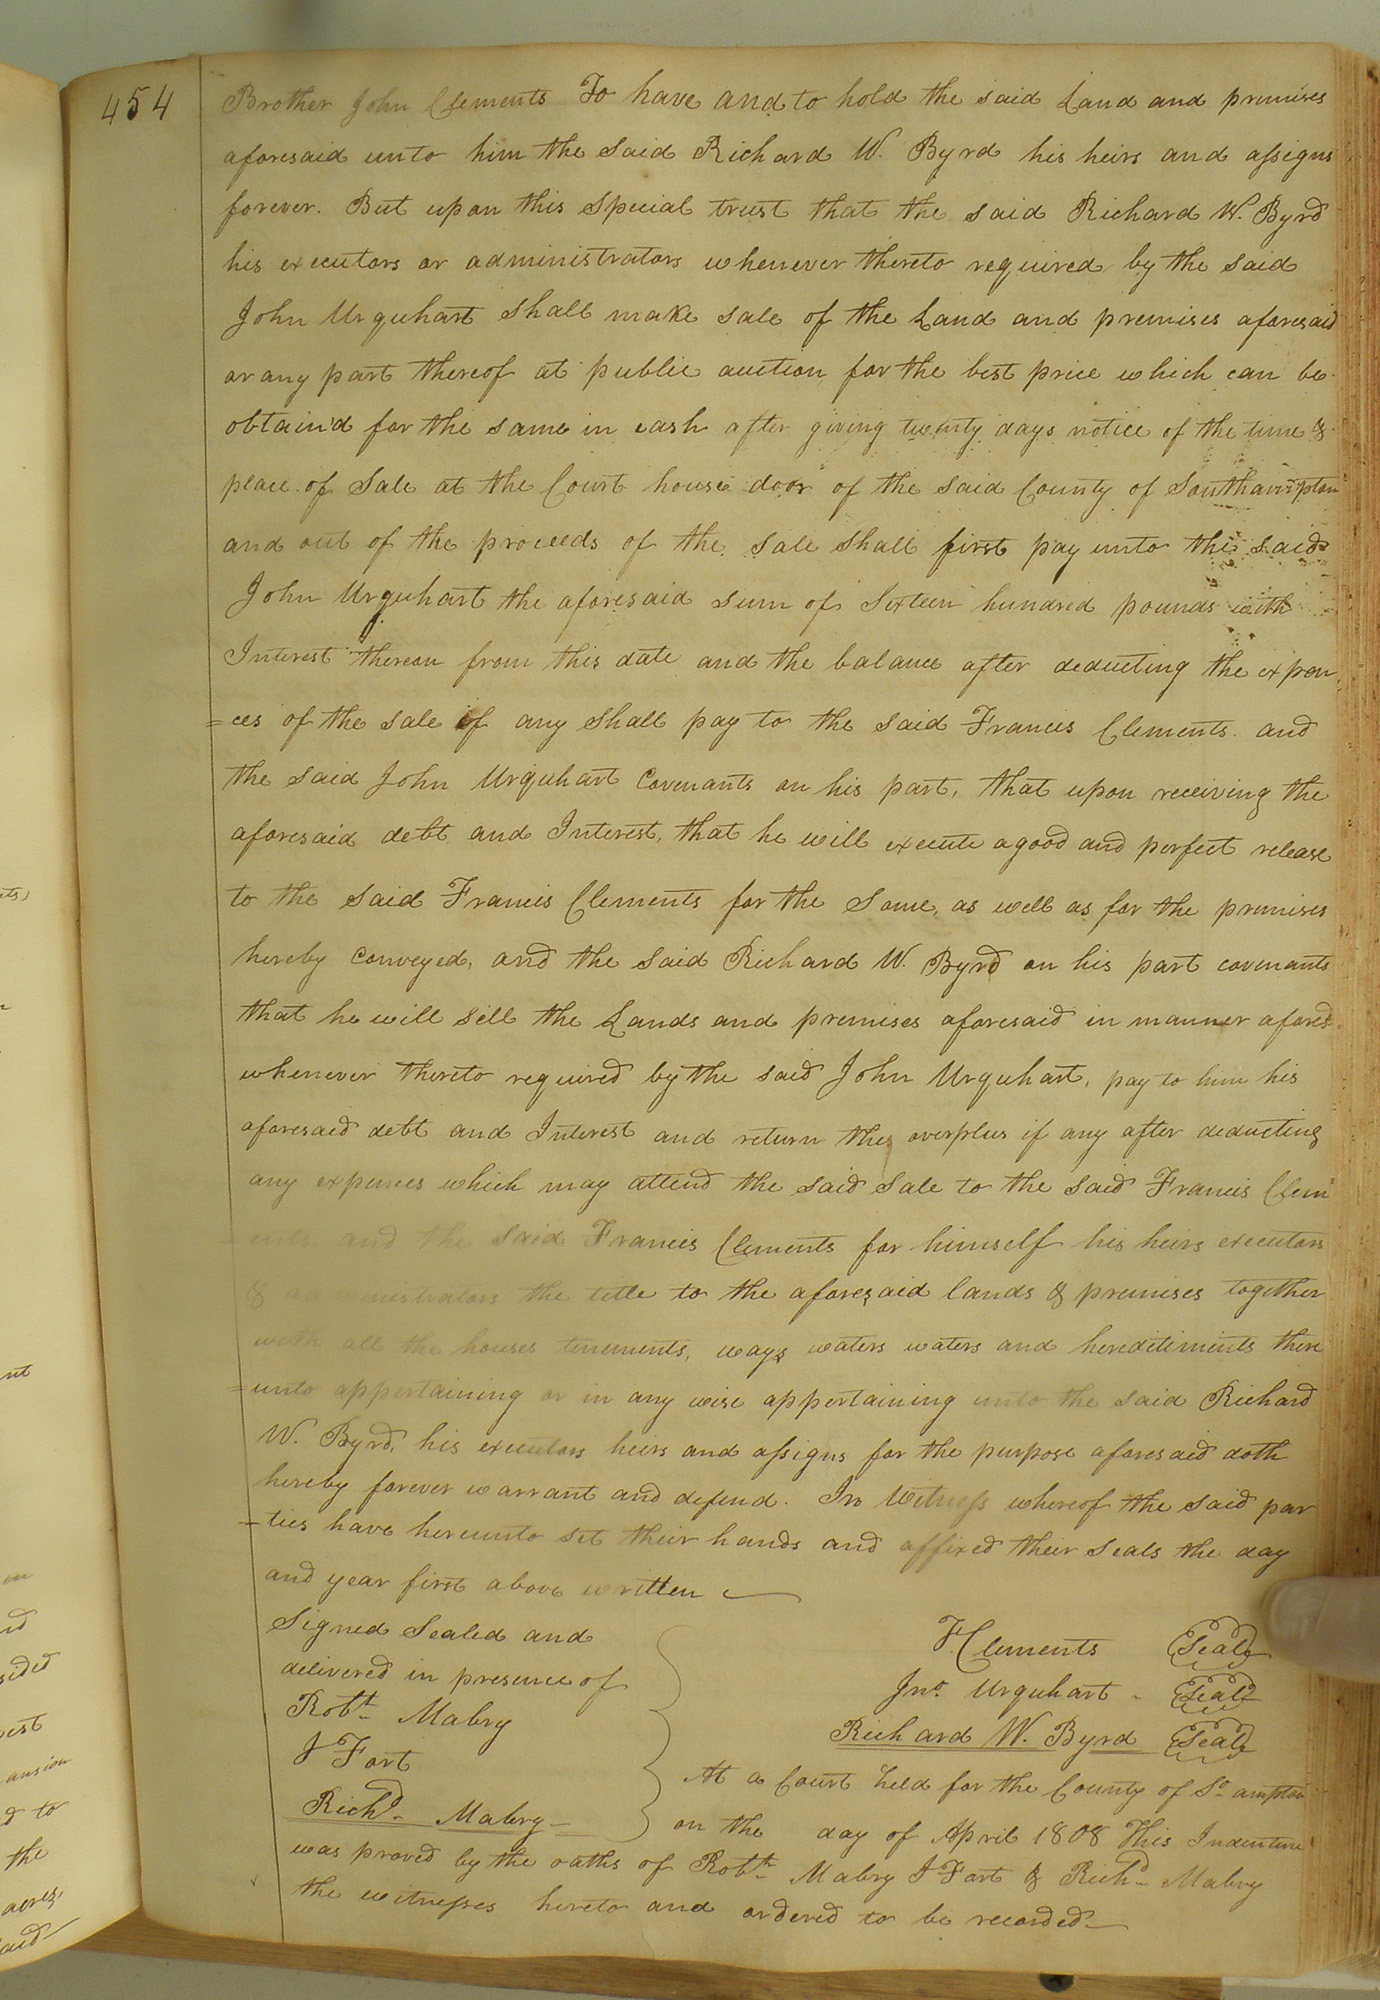 454
Brother John Clements To have and to hold the said Land and premises
aforesaid unto him the said Richard W. Byrd his heirs and assigns
forever. But upon this special trust that the said Richard W. Byrd
his executors or administrators whenever thereto required by the said
John Urquhart shall make sale of the Land and premises aforesaid
or any part thereof at public auction for the best price which can be
obtain'd for the same in cash after giving twenty days notice of the time &
place of Sale at the Court house door of the said County of Southampton
and out of the proceeds of the sale shall first pay unto the said
John Urquhart the aforesaid sum of Sixteen hundred pounds with
Interest thereon from this date and the balance after deducting the expen
=ces of the sale if any shall pay to the said Francis Clements. and
the said John Urquhart Covenants on his part, that upon receiving the
aforesaid debt and Interest, that he will execute a good and perfect release
to the said Francis Clements for the same, as well as for the premises
hereby conveyed, and the said Richard W. Byrd on his part covenants
that he will sell the Lands and premises aforesaid in manner afores.d
whenever thereto required by the said John Urquhart, pay to him his
aforesaid debt and Interest and return the overplus if any after deducting
any expences which may attend the said Sale to the said Francis Clem
=ents. and the said Francis Clements for himself his heirs executors
& administrators the title to the aforesaid lands & premises together
with all the houses tenements, ways waters waters and hereditiments there
=unto appertaining or in any wise appertaining unto the said Richard
W. Byrd, his executors heirs and assigns for the purpose aforesaid doth
hereby forever warrant and defend. In Witness whereof the said par
=ties have hereunto set their hands and affixed their seals the day
and year first above written
Signed Sealed and
delivered in presence of
Robt. Mabry
J Fort
Richd. Mabry
F. Clements Seal
Jno. Urquhart Seal
Richard W. Byrd Seal
At a Court held for the County of So. ampton
on the day of April 1808 This Indenture
was proved by the oaths of Robt. Mabry J Fort & Richd. Mabry
the witnesses hereto and ordered to be recorded